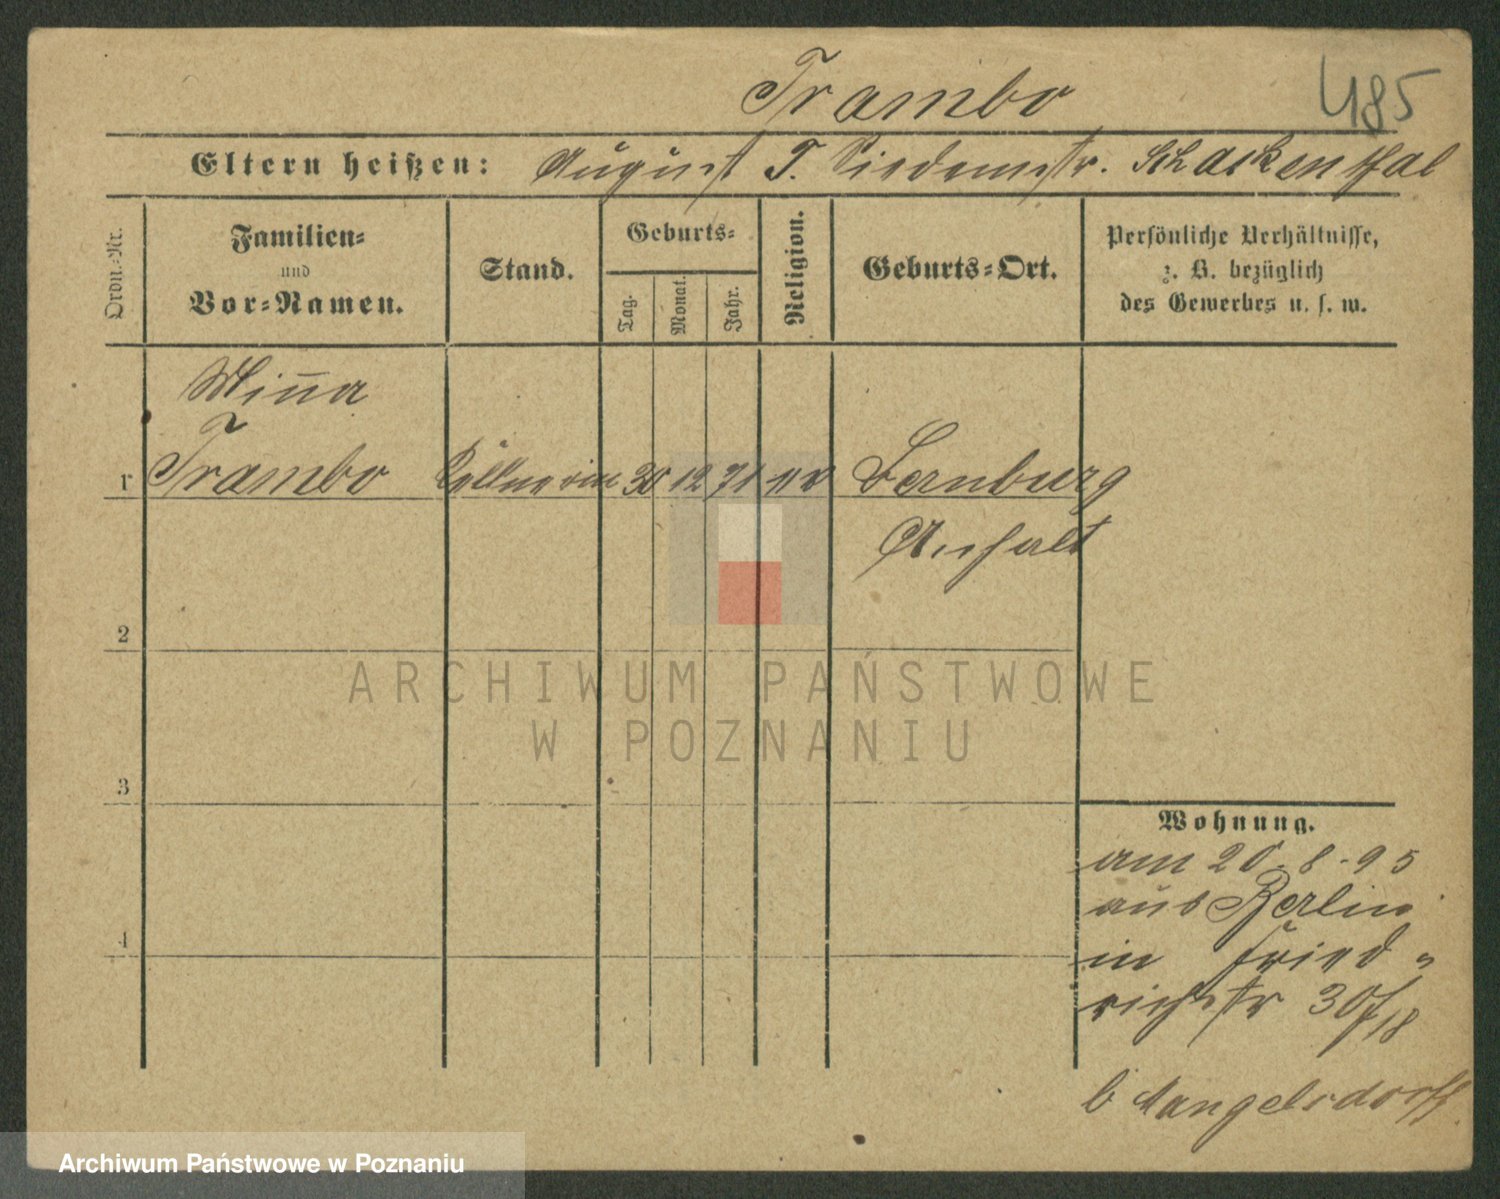 Trambo
485
Eltern heißen: August T. Siedemstr. Schackenthal
Ordn.-Nr.
Familien-
und
Vor-Namen.
Stand.
Geburts-
Tag.
Monat.
Jahr.
Religion.
Geburts-Ort.
Persönliche Verhältnisse,
z. B. bezüglich
des Gewerbes u. s. w.
Mina
1 Trambo Kellnerin 30 12 71 ev Bernburg
Anhalt
2
3
4
Wohnung.
am 20.8.95
aus Berlin
in Fried-
richstr 30/18
b Mangelsdorff
ARCHIWUM PAŃSTWOWE
W POZNANIU
Archiwum Państwowe w Poznaniu